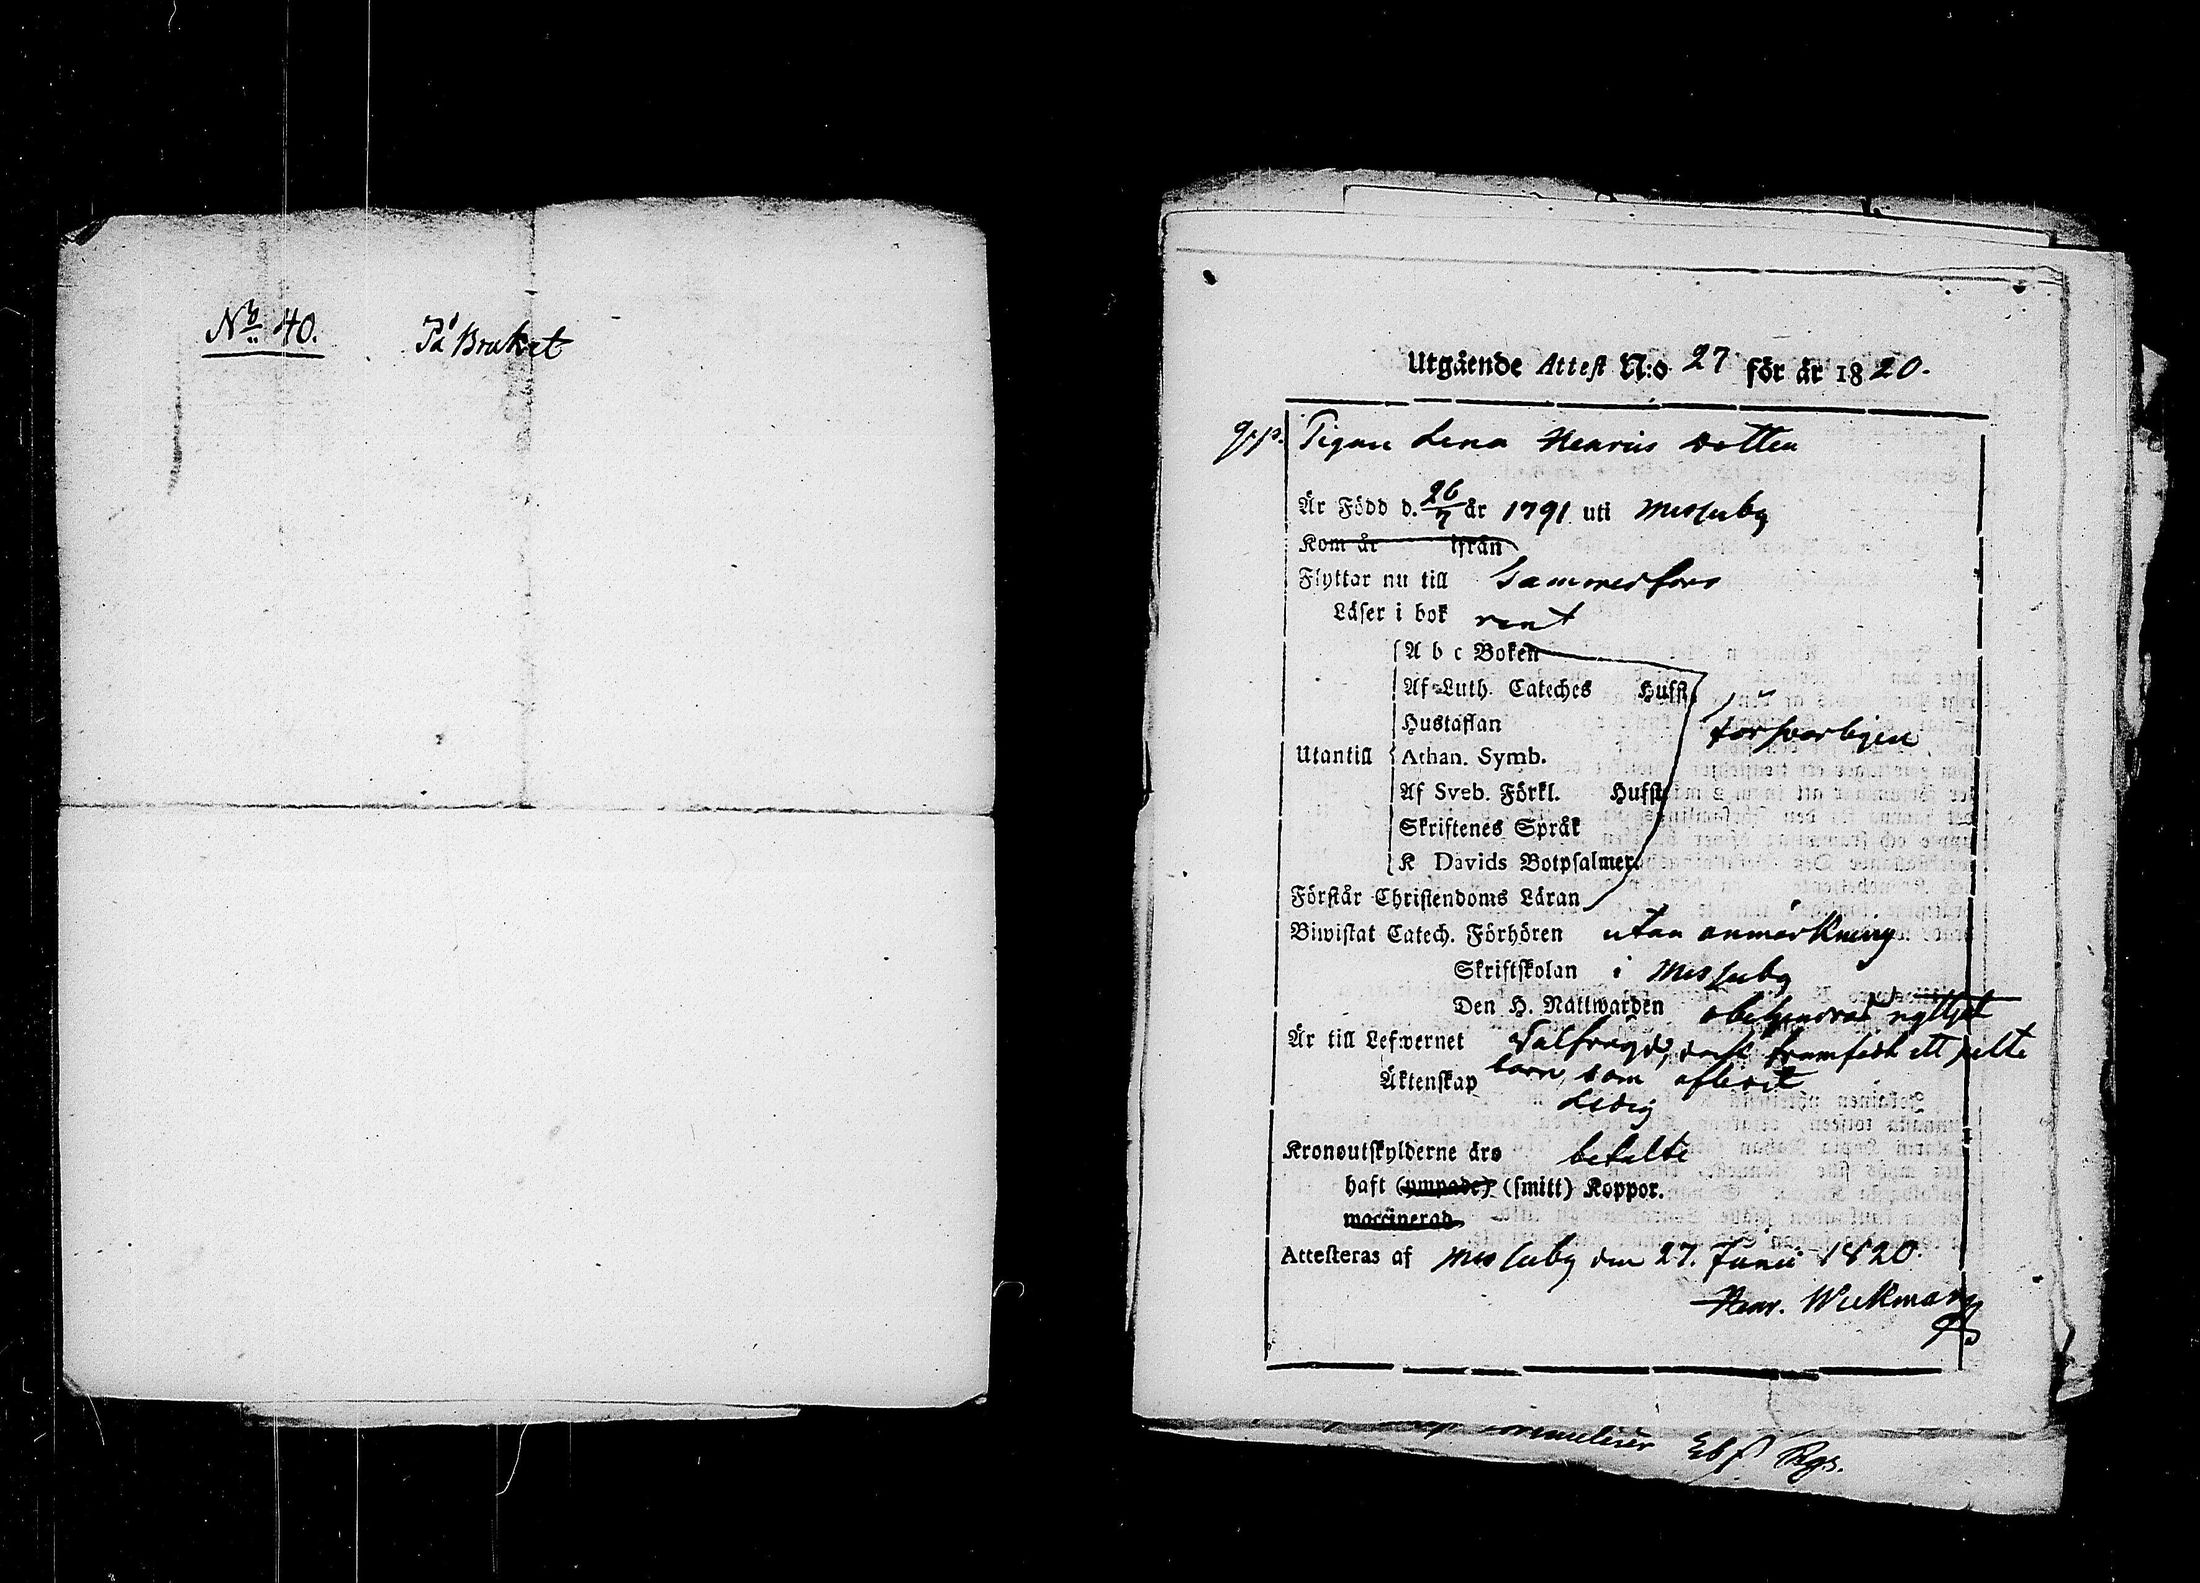 No 40. På Bruket
Utgående Attest N:o 27 för år 1820.
Pigan Lena Henrics dotter
Är Född d. 26/7 år 1791 uti Messuby
Kom år ifrån
Flyttar nu till Tammerfors
Läser i bok rent
A b c Boken
Af Luth. Cateches Hufft
Hustaflan
försvarligen
Utantill Athan. Symb.
Af Sveb. Förkl. Hufft
Skriftenes Språk
K Davids Botpsalmer
Förstår Christendoms Läran
Biwistat Catech. Förhören utan anmärkning
Skriftskolan i Messuby
Den H. Nattwarden obehindrad nyttjat
Är till Lefwernet välfrägd, dock framfödt ett
barn, som aflidit
Äktenskap
Ledig
Kronoutskylderne äro betalte
haft (ympade) (smitt) Koppor.
waccinerad
Attesteras af Messuby den 27. Junii 1820.
Henr. Wickman